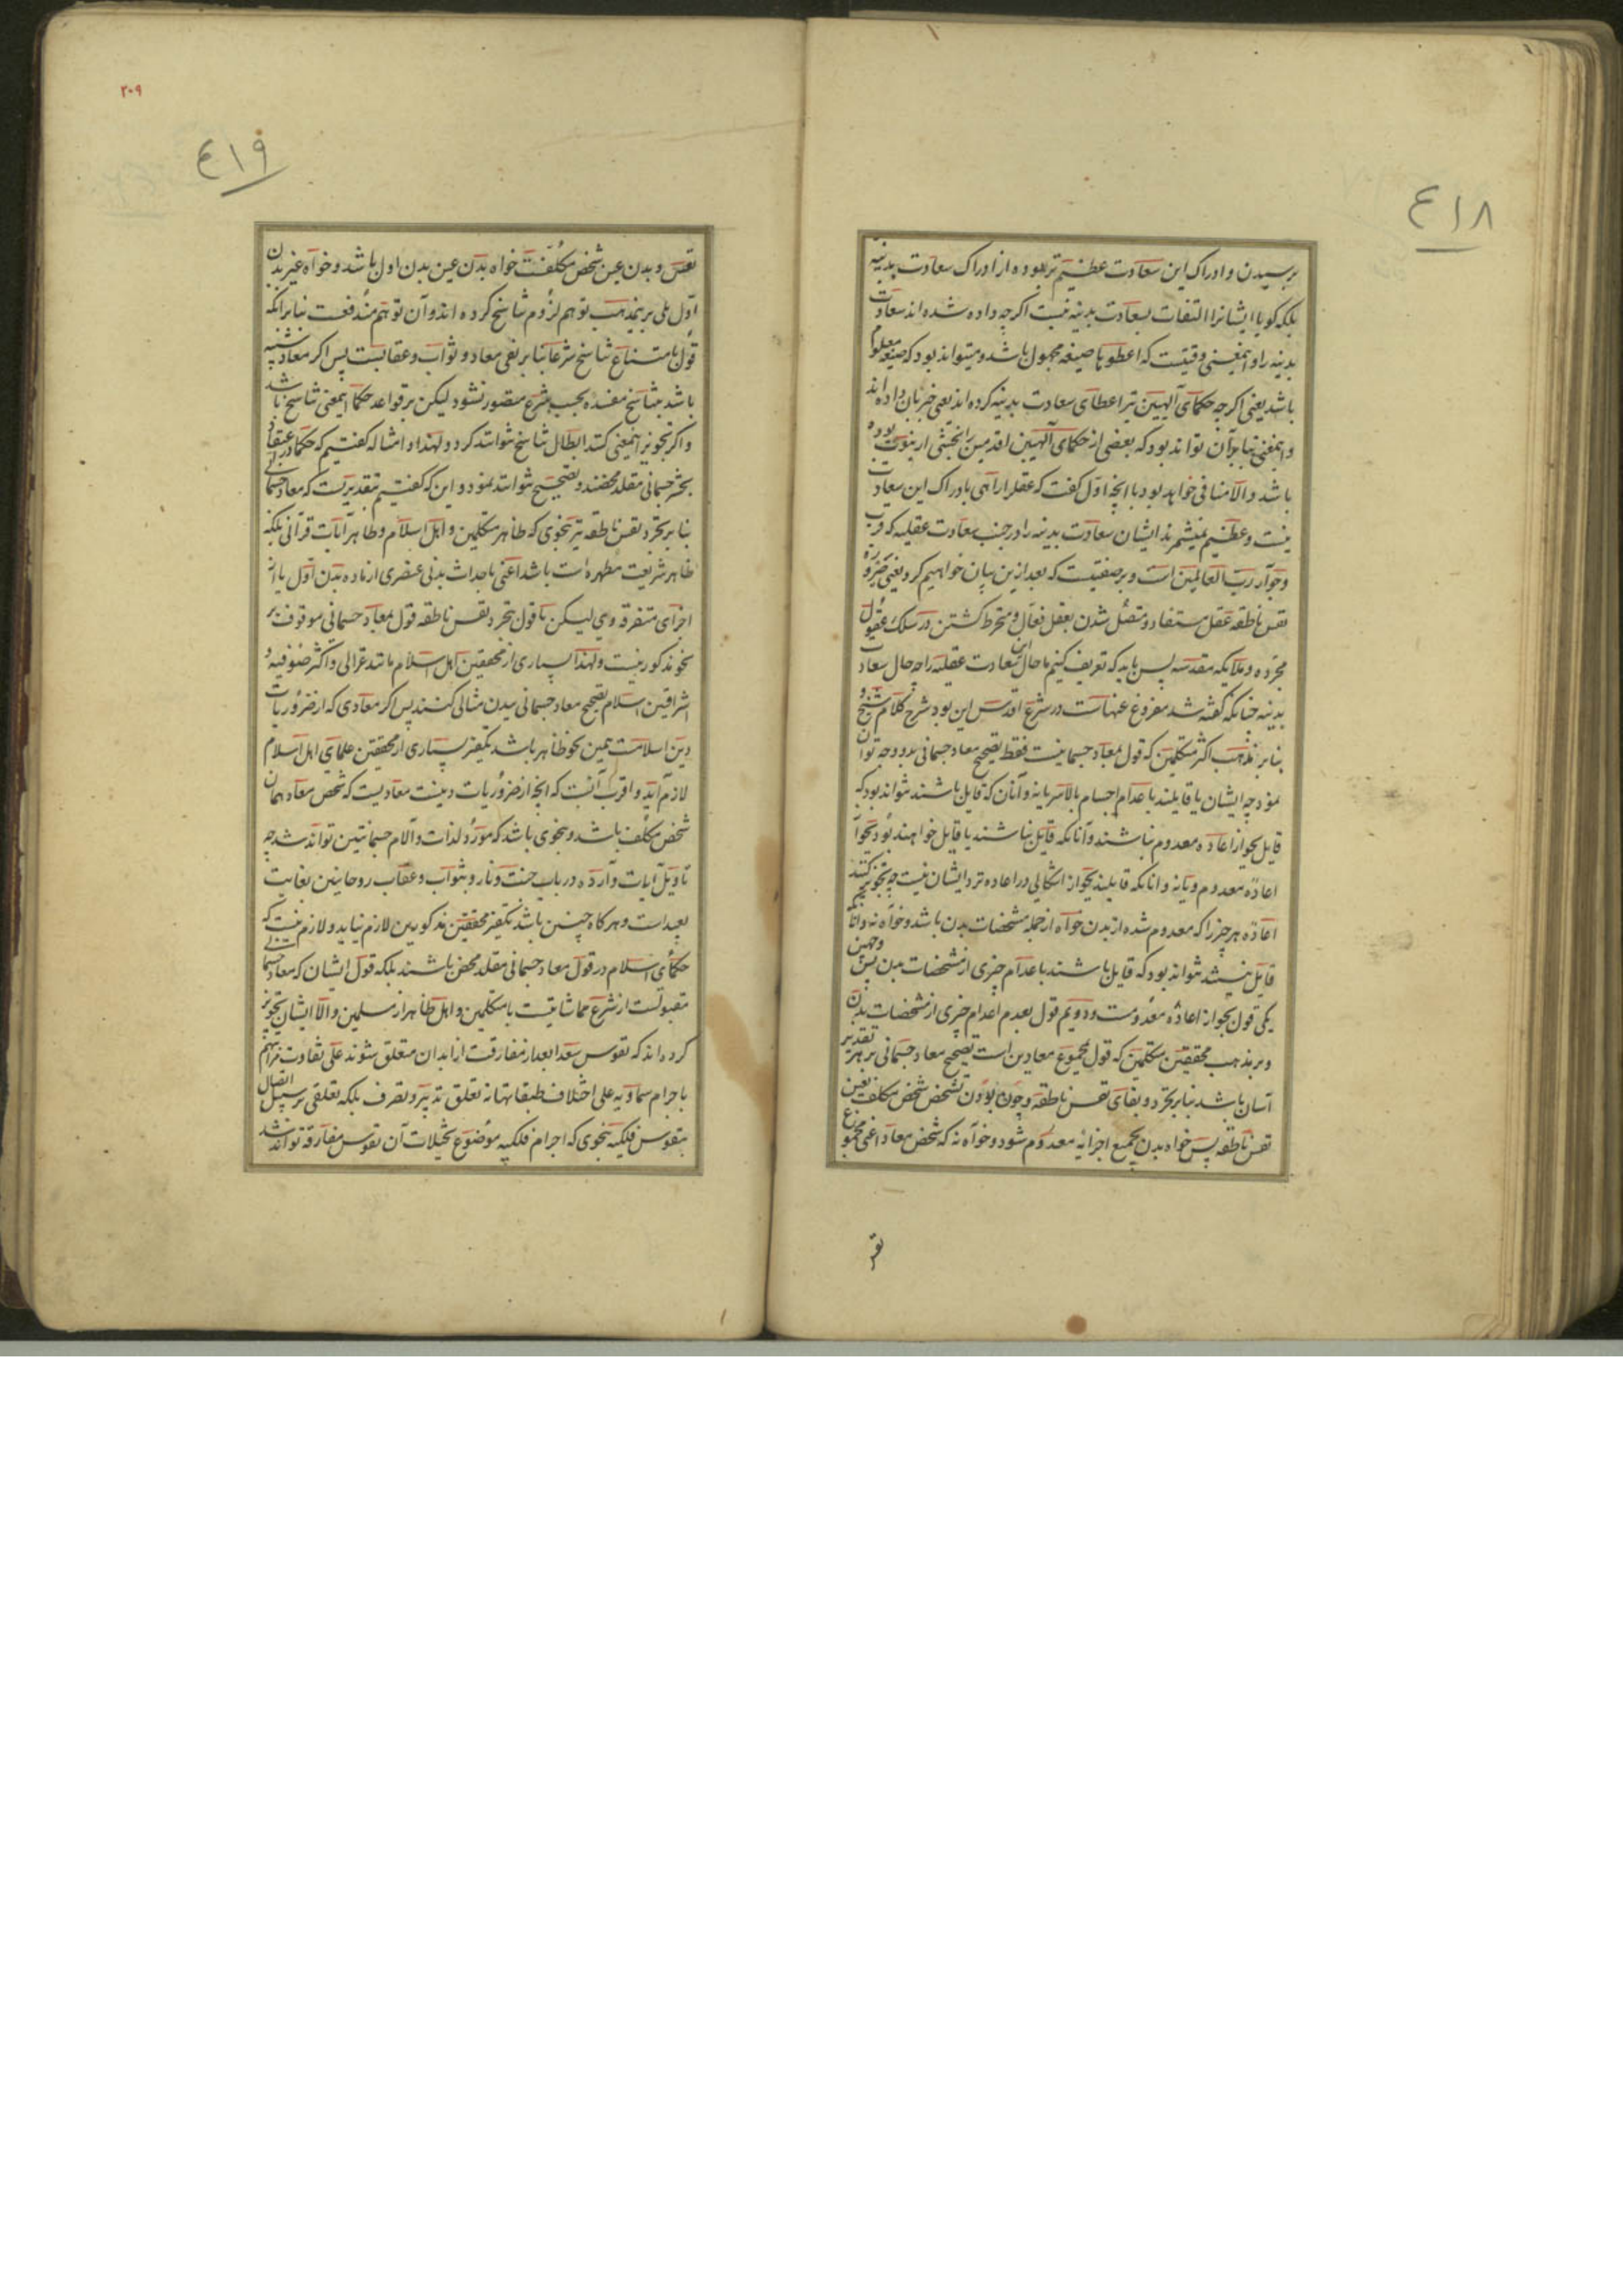 ٤١٨
برسیدن و ادراک این سعادت عظیم تر بوده از ادراک سعادت بدنیه
بلکه کویا ایشانرا التفات بسعادت بدنیه نیست اکرچه داده شده اند سعادت
بدنیه را و اینمعنی وقتیست که اعطو با صیغه مجهول باشد و میتواند بود که صیغه معلوم
باشد یعنی اکرچه حکمای آلهیین نیز اعطای سعادت بدنیه کرده اند یعنی خبر بان داده اند
و اینمعنی بنا بر آن تواند بود که بعضی از حکمای آلهیین اقدمین را بخشی از نبوت بوده
باشد و الا منافی خواهد بود با انچه اول کفت که عقل را راهی بادراک این سعادت
نیست و عظیم نمیشمرند ایشان سعادت بدنیه را در جنب سعادت عقلیه که قرب
و جوار رب العالمین است و بر صفتیست که بعد ازین بیان خواهیم کرد یعنی ضروره
نفس ناطقه عقل مستفاد و متصل شدن بعقل فعال و منخرط کشتن در سلک عقول
مجرده و ملایکه مقدسه پس باید که تعریف کنیم ما حال این سعادت عقلیه را چه حال سعادت
بدنیه چنانکه کفته شد مفروغ عنهاست در شرع اقدس این بود شرح کلام شیخ و
بنا بر مذهب اکثر متکلمین که قول بمعاد جسمانیست فقط تصحیح معاد جسمانی بدو وجه توان
نمود چه ایشان یا قایلند باعدام اجسام بالاسر یا نه و آنان که قایل باشند نتواند بود که
قایل بجواز اعاده معدوم نباشند و آنانکه قایل نباشند یا قایل خواهند بود بجواز
اعاده معدوم و یا نه و انانکه قایلند بجواز اشکالی در اعاده نزد ایشان نیست چه تجویز کنند
اعاده هر چیز را که معدوم شده از بدن خواه از جمله مشخصات بدن باشد و خواه نه و انانکه
قایل نیستند نتواند بود که قایل باشند باعدام چیزی از مشخصات بدن پس وجهین
یکی قول بجواز اعاده معدومست و دویم قول بعدم اعدام چیزی از مشخصات بدن
و بر مذهب محققین متکلمین که قول بمجموع معادین است تصحیح معاد جسمانی بر هر تقدیر
آسان باشد بنا بر تجرد و بقای نفس ناطقه و چون بودن تشخص شخص مکلف بعین
نفس ناطقه پس خواه بدن بجمیع اجزائه معدوم شود و خواه نه که شخص معاد اعنی مجموع
نفس
٢٠٩
٤١٩
نفس و بدن عین شخص مکلفست خواه بدن عین بدن اول باشد و خواه غیر بدن
اول بلی برینمذهب توهم لزوم تناسخ کرده اند و آن توهم مندفعست بنا برانکه
قول بامتناع تناسخ شرعا بنا بر نفی معاد و ثواب و عقابست پس اکر معاد شبیه
باشد بتناسخ مفسده بحسب شرع متصور نشود لیکن بر قواعد حکما اینمعنی تناسخ باشد
و اکر تجویز اینمعنی کنند ابطال تناسخ نتوانند کرد و لهذا و امثاله کفتیم که حکما در اعتقاد
بحشر جسمانی مقلد محضند و تصحیح نتوانند نمود و این که کفتیم بتقدیریست که معاد جسمانی
بنا بر تجرد نفس ناطقه نیز بنحوی که ظاهر متکلمین و اهل اسلام و ظاهر آیات قرآنی بلکه
ظاهر شریعت مطهره است باشد اعنی باحداث بدنی عنصری از ماده بدن اول یا از
اجزای متفرقه وی لیکن با قول بتجرد نفس ناطقه قول بمعاد جسمانی موقوف بر
نحو مذکور نیست و لهذا بسیاری از محققین اهل اسلام مانند غزالی و اکثر صوفیه و
اشراقیین اسلام تصحیح معاد جسمانی ببدن مثالی کنند پس اکر معادی که از ضروریات
دین اسلامست همین نحو ظاهر باشد تکفیر بسیاری از محققین علمای اهل اسلام
لازم آید و اقرب آنست که انچه از ضروریات دینست معادیست که شخص معاد همان
شخص مکلف باشد و بنحوی باشد که مورد لذات و آلام جسمانیتین تواند شد چه
تاویل آیات وارده در باب جنت و نار و ثواب و عقاب روحانیین بغایت
بعید است و هرکاه چنین باشد تکفیر محققین مذکورین لازم نیاید و لازم نیست که
حکمای اسلام در قول معاد جسمانی مقلد محض باشند بلکه قول ایشان که معاد جسمانی
مقبولست از شرع مماشاتیست با متکلمین و اهل ظاهر از مسلمین و الا ایشان تجویز
کرده اند که نفوس سعدا بعد از مفارقت از ابدان متعلق شوند علی تفاوت مراتبهم
باجرام سماویه علی اختلاف طبقاتها نه تعلق تدبیر و تصرف بلکه تعلقی بر سبیل اتصال
بنفوس فلکیه بنحوی که اجرام فلکیه موضوع تخیلات آن نفوس مفارقه توانند شد